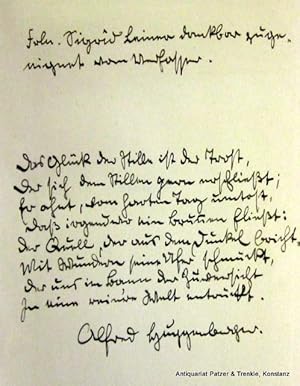 Frln. Sigrid Leiner dankbar zuge-
eignet vom Verfasser.
Das Glück der Stille ist der Trost,
Der sich dem Stillen gern erschließt;
Er ahnt, vom harten Tag umtost,
Daß irgendwo ein Brunnen fließt:
Der Quell, der aus dem Dunkel bricht,
Mit Wundern seine Ufer schmückt,
Der uns im Bann der Zuversicht
In eine reinre Welt entrückt.
Alfred Huggenberger.
Antiquariat Patzer & Trenkle, Konstanz